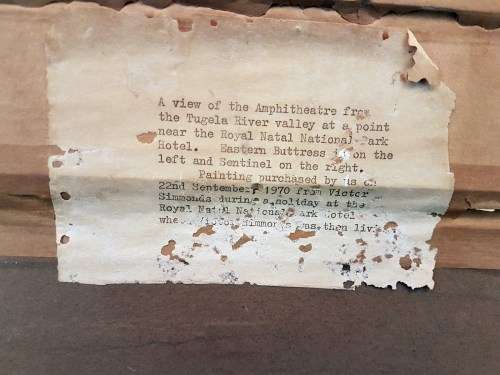 A view of the Amphitheatre from
the Tugela River valley at a point
near the Royal Natal National Park
Hotel. Eastern Buttress is on the
left and Sentinel on the right.
Painting purchased by us on
22nd September 1970 from Victor
Simmonds during a holiday at the
Royal Natal National Park Hotel
where Victor Simmonds was then